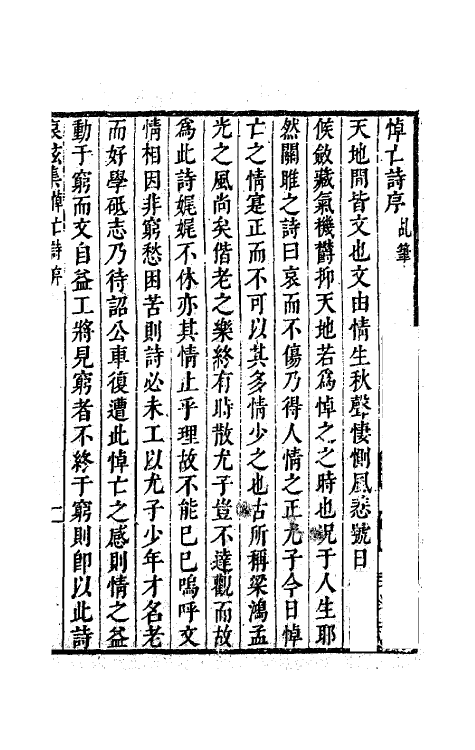 悼亡詩序 乩筆
天地間皆文也文由情生秋聲悽惻風悲號日
候斂藏氣機欝抑天地若為悼之之時也況于人生耶
然關雎之詩曰哀而不傷乃得人情之正尤子今日悼
亡之情寔正而不可以其多情少之也古所稱梁鴻孟
光之風尚矣偕老之樂終有時散尤子豈不達觀而故
為此詩娓娓不休亦其情止乎理故不能已已嗚呼文
情相因非窮愁困苦則詩必未工以尤子少年才名老
而好學砥志乃待詔公車復遭此悼亡之感則情之益
動于窮而文自益工將見窮者不終于窮則即以此詩
哀絃集悼亡詩序 一